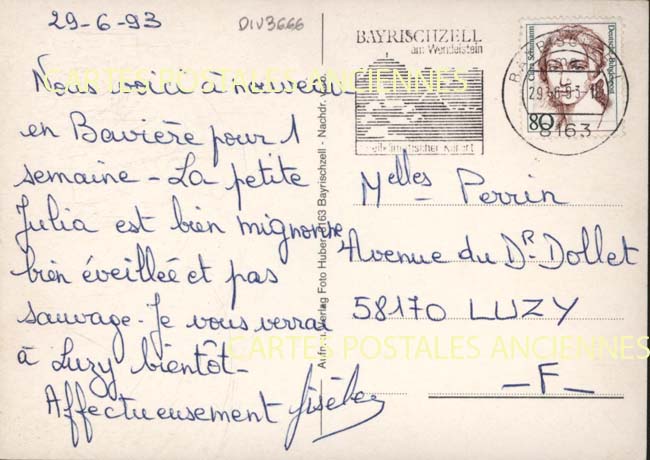 29-6-93
DIV3666
Nous voici à nouveau
en Bavière pour 1
semaine - La petite
Julia est bien mignonne
bien éveillée et pas
sauvage. Je vous verrai
à Luzy bientôt -
Affectueusement Gisèle
Foto Huber 8163 Bayrischzell - Nachdr.
BAYRISCHZELL
am Wendelstein
heilklimatischer Kurort
Clara Schumann
Deutsche Bundespost
80
BAYRISCHZELL
29.-6.93-18
8163
Melles Perrin
4 Avenue du DR Dollet
58170 LUZY
- F -
CARTES POSTALES ANCIENNES
CARTES POSTALES ANCIENNES